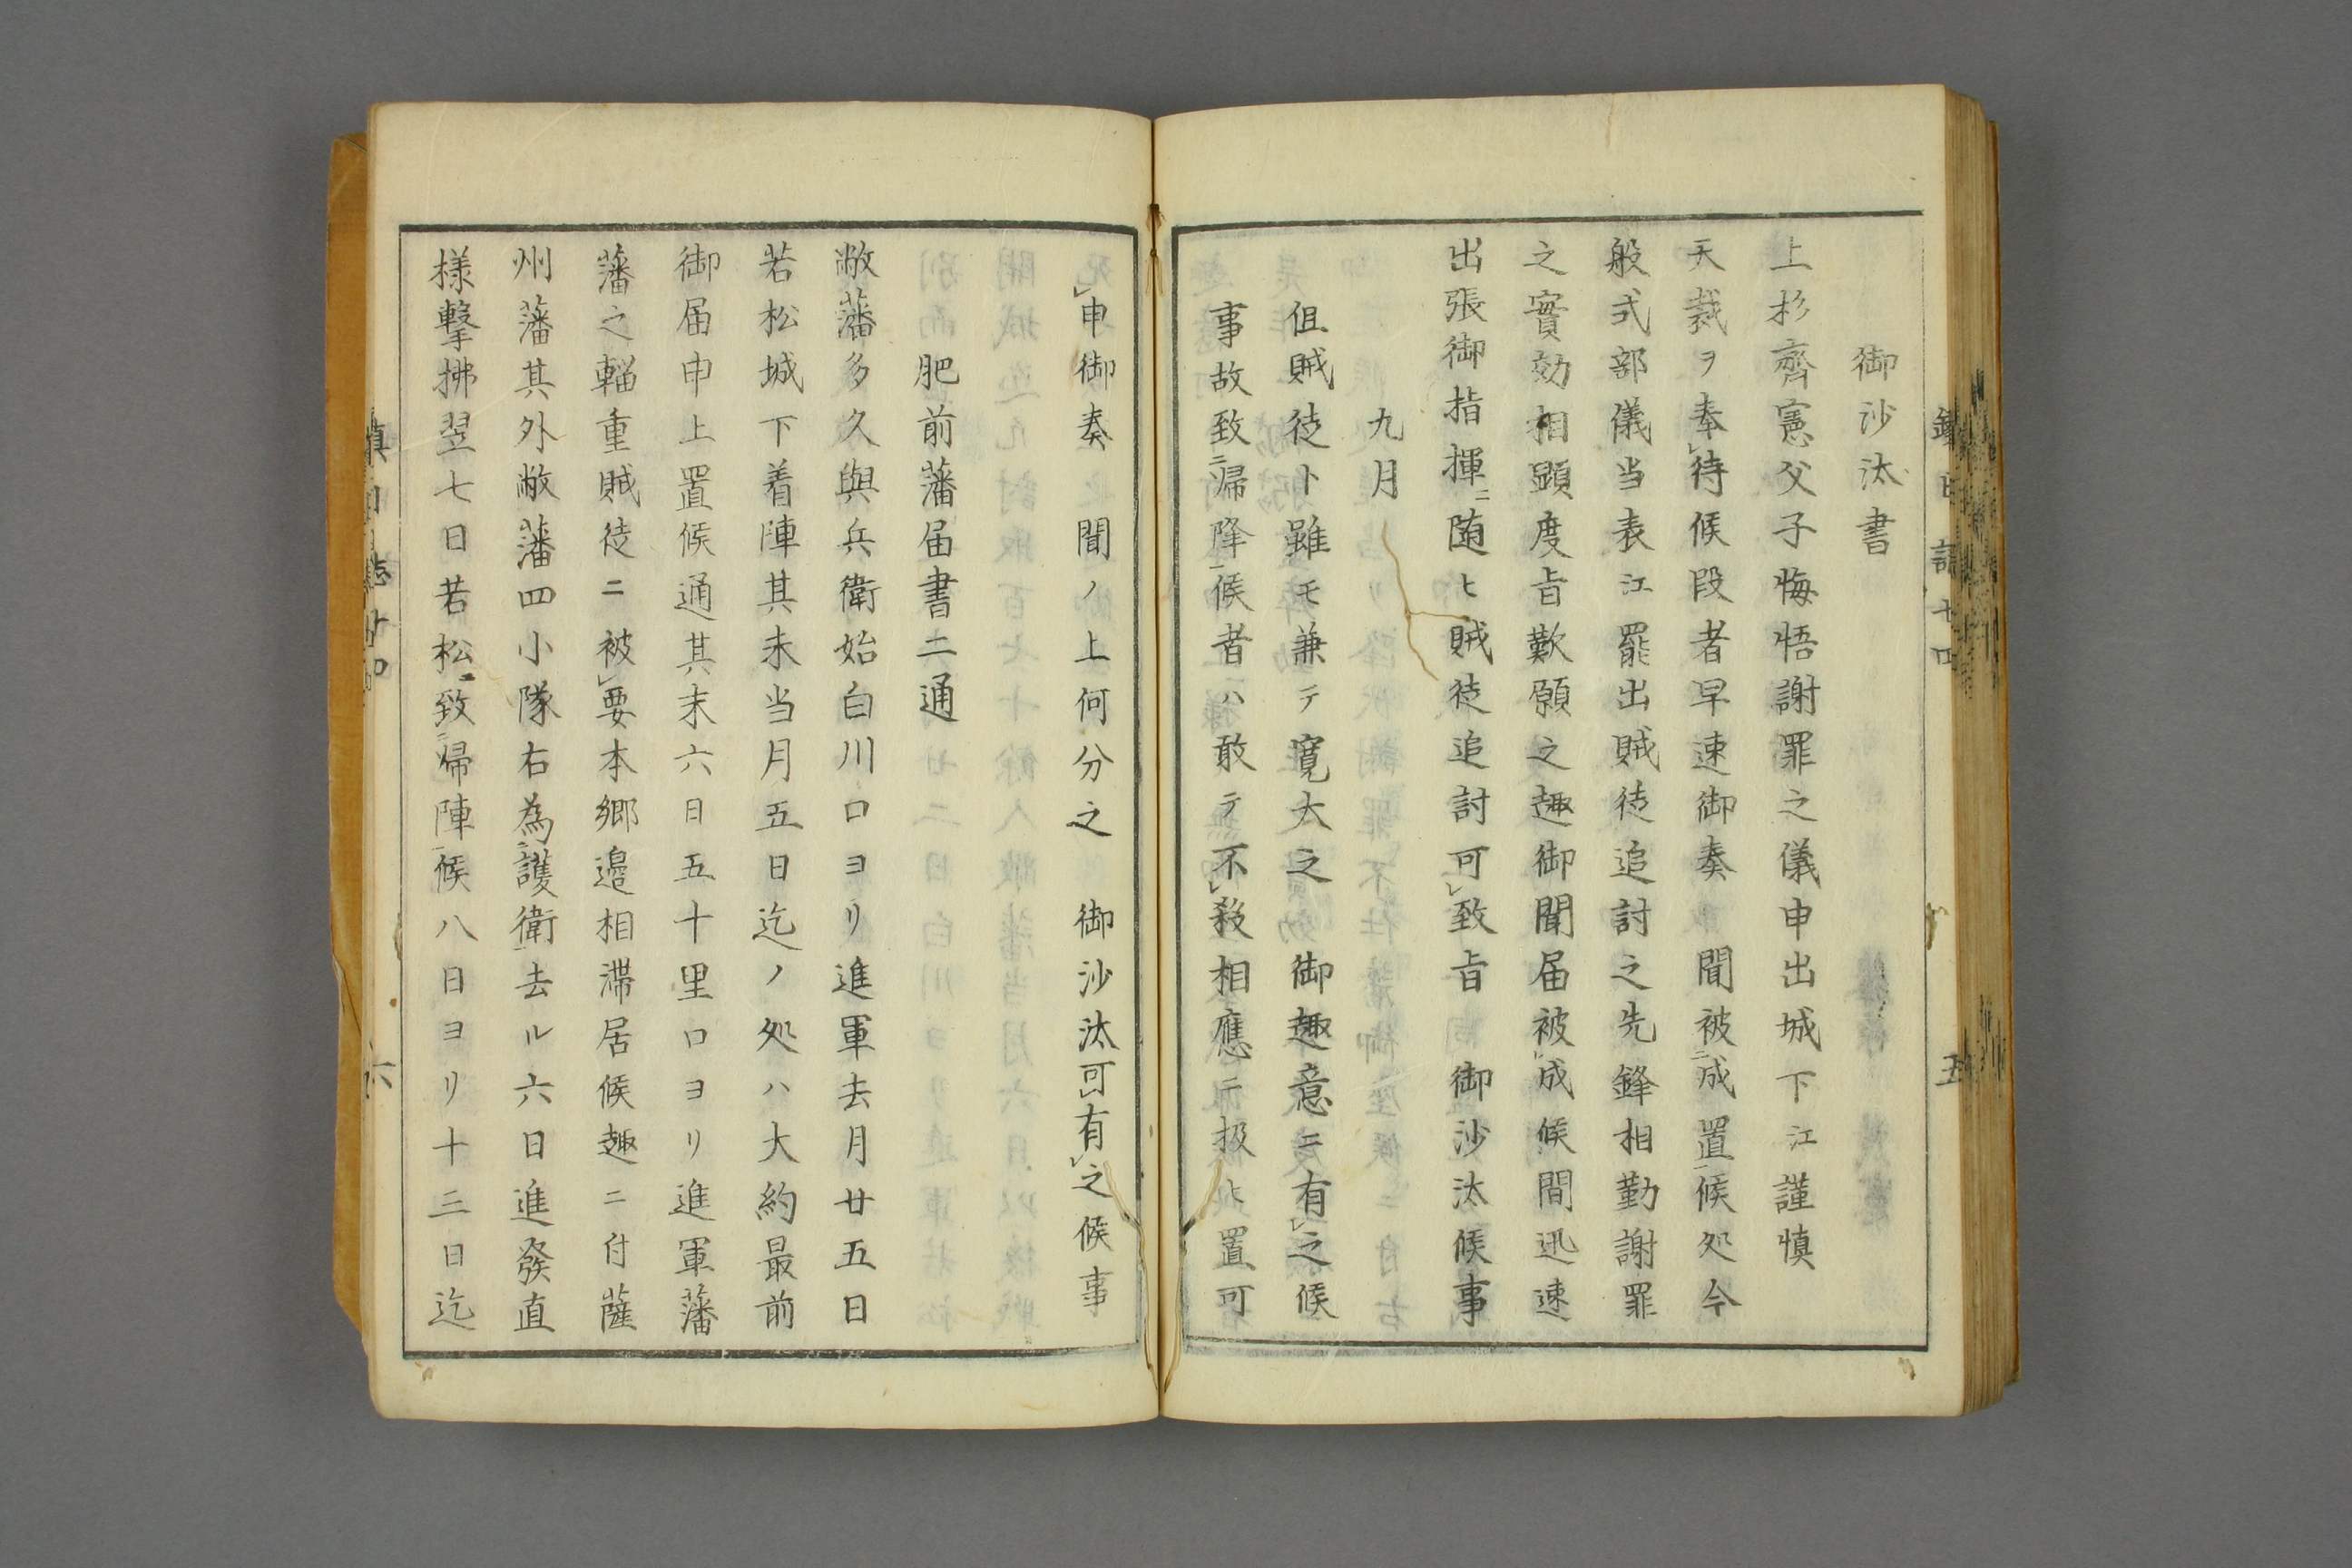 御沙汰書
上杉齊憲父子悔悟謝罪之儀申出城下江謹慎
天裁ヲ奉レ待候段者早速御奏　聞被二成置一候処今
般式部儀当表江罷出賊徒追討之先鋒相勤謝罪
之實効相顕度旨歎願之趣御聞届被レ成候間迅速
出張御指揮ニ随ヒ賊徒追討可レ致旨　御沙汰候事
九月
但賊徒ト雖モ兼テ寛大之　御趣意ニ有レ之候
事故致二帰降一候者ハ敢テ不レ殺相應ニ扱ヒ置可
レ申御奏　聞ノ上何分之　御沙汰可レ有レ之候事
肥前藩届書二通
敝藩多久與兵衛始白川口ヨリ進軍去月廿五日
若松城下着陣其末当月五日迄ノ処ハ大約最前
御届申上置候通其末六日五十里口ヨリ進軍藩
藩之輜重賊徒ニ被レ要本郷邉相滞居候趣ニ付薩
州藩其外敝藩四小隊右為二護衛一去ル六日進發直
様撃拂翌七日若松ニ致二帰陣一候八日ヨリ十三日迄
六